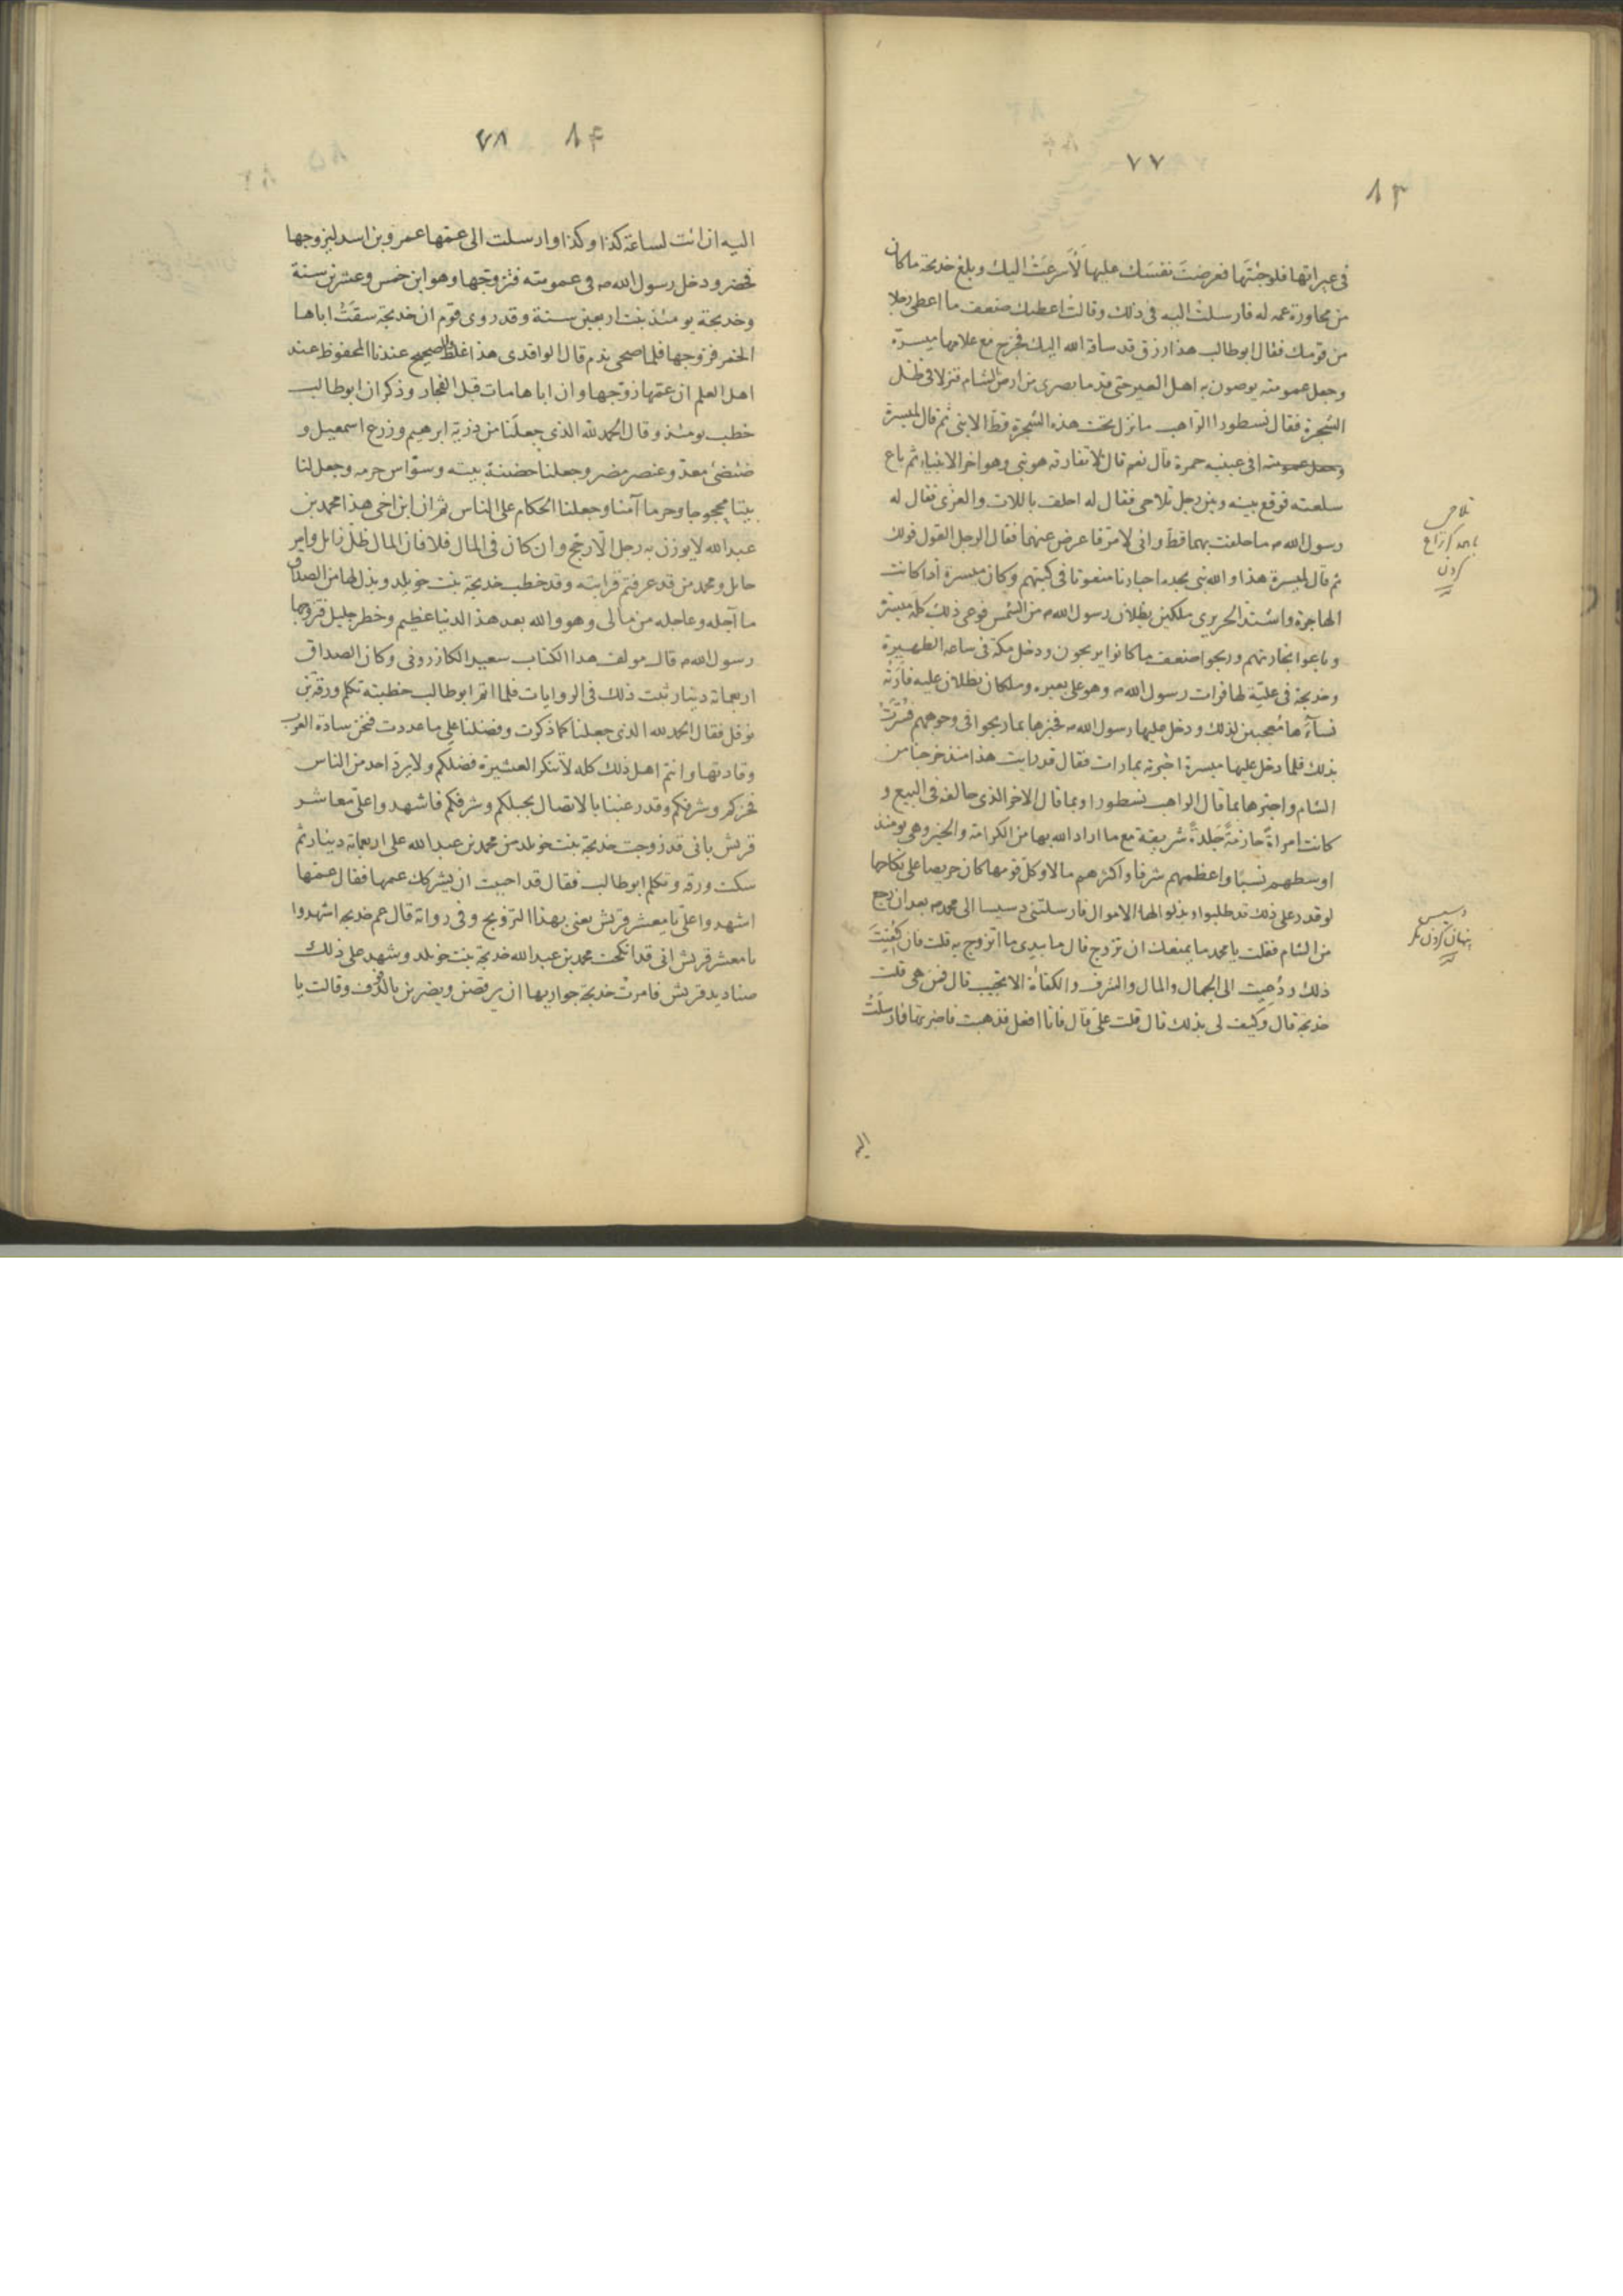 ٧٧
٨٣
فى عيراتها فلوجئتَها فعرضتَ نفسَك عليها لَأَسرعَتْ اليك وبلغ خديجة ماكان
من محاورة عمه له فارسلتْ اليه فى ذلك وقالتْ اعطيك ضعف ما اعطى رجلا
من قومك فقال ابوطالب هذا رزق قد ساقه الله اليك فخرج مع غلامها ميسرة
وجعل عمومته يوصون به اهل العير حتى قدما بصرى من ارض الشام فنزلا فى ظل
الشجرة فقال نسطورا الراهب ما نزل تحت هذه الشجرة قطّ الا نبى ثم قال لميسرة
وجعل عمومته افى عينيه حمرة قال نعم قال لا تفارقه هو نبى وهو اخر الانبياء ثم باع
سلعته فوقع بينه وبين رجل تلاحى فقال له احلف باللات والعزّى فقال له
رسول الله ص ماحلفت بهما قط وانى لامرّ فاعرض عنهما فقال الرجل القول قولك
ثم قال لميسرة هذا والله نبى يجده احبارنا منعوتا فى كتبهم وكان ميسرة اذا كانت
الهاجرة واشتدّ الحر يرى ملكين يظلان رسول الله ص من الشمس فوعى ذلك كلّه ميسرة
وباعوا تجارتهم وربحوا ضعف ماكانوا يربحون ودخل مكة فى ساعه الظهيرة
وخديجة فى علّيّة لها فرات رسول الله ص وهو على بعيره وملكان يظلان عليه فأرَتْه
نسآءَها فعجبن لذلك ودخل عليها رسول الله ص فخبرها بما ربحوا فى وجوههم فسُرَّتْ
بذلك فلما دخل عليها ميسرة اخبرته بمارات فقال قد رايت هذا منذ خرجنا من
الشام واخبرها بما قال الراهب نسطورا وبما قال الاخر الذى خالفه فى البيع و
كانت امراةً حازمةً جلدةً شريفة مع ما اراد الله بها من الكرامة والخير وهى يومئذ
اوسطهم نسبًا واعظمهم شرفا واكثرهم مالا وكل قومها كان حريصا على نكاحها
لو قدر على ذلك قد طلبوا وبذلوا لها الاموال فارسلتنى دسيسا الى محمد ص بعد ان رجع
من الشام فقلت يا محمد ما يمنعك ان تزوج قال ما بيدى ما اتزوج به قلت فان كُفِيتَ
ذلك ودُعِيت الى الجمال والمال والشرف والكفاءة الا تجيب قال فمن هى قلت
خديجة قال وكيف لى بذلك قال قلت علىّ قال فانا افعل فذهبت فاخبرتها فارسلَتْ
اليه
تلاحى
كردن
دسيس
پنهان كردن مكر
٧٨
٨۴
اليه ان ائت لساعة كذا وكذا وارسلت الى عمّها عمرو بن اسد ليزوجها
فحضر ودخل رسول الله ص فى عمومته فتزوّجها وهو ابن خمس وعشرين سنة
وخديجة يومئذ بنت اربعين سنة وقد روى قوم ان خديجة سقَتْ اباها
الخمر فزوجها فلما صحى ندم قال الواقدى هذا غلط والصحيح عندنا المحفوظ عند
اهل العلم ان عمّها زوّجها وان اباها مات قبل الفجار وذكر ان ابوطالب
خطب يومئذ وقال الحمد لله الذى جعلَنا من ذريّة ابرهيم وزرع اسمعيل و
ضئضئ معدّ وعنصر مضر وجعلنا حضنة بيته وسوّاس حرمه وجعل لنا
بيتا محجوجا وحرما آمنا وجعلنا الحكام على الناس ثم ان ابن اخى هذا محمد بن
عبد الله لا يوزن به رجل الّا رجح وان كان فى المال قلّ فان المال ظلّ زائل وامر
حائل ومحمد من قد عرفتم قرابته وقد خطب خديجة بنت خويلد وبذل لها من الصداق
ما آجله وعاجله من مالى وهو والله بعد هذا الدنيا عظيم وخطر جليل فتزوجها
رسول الله ص قال مولف هذا الكتاب سعيد الكازرونى وكان الصداق
اربعمائة دينار ثبت ذلك فى الروايات فلما اتم ابوطالب خطبته تكلم ورقة بن
نوفل فقال الحمد لله الذى جعلنا كما ذكرت وفضلنا على ما عددت فنحن سادة العرب
وقادتها وانتم اهل ذلك كله لا تنكر العشيرة فضلكم ولا يردّ احد من الناس
فخركم وشرفكم وقد رغبنا بالاتصال بحبلكم وشرفكم فاشهدوا علىّ معاشر
قريش بانى قد زوجت خديجة بنت خويلد من محمد بن عبد الله على اربعمائة دينار ثم
سكت ورقة وتكلم ابوطالب فقال قد احببت ان يشركك عمها فقال عمّها
اشهدوا علىّ يا معشر قريش يعنى بهذا التزويج وفى رواية قال عم خديجه اشهدوا
يا معشر قريش انى قد انكحت محمد بن عبد الله خديجة بنت خويلد وشهد على ذلك
صناديد قريش فامرتْ خديجة جواريها ان يرقصن ويضربن بالدُّف وقالت يا